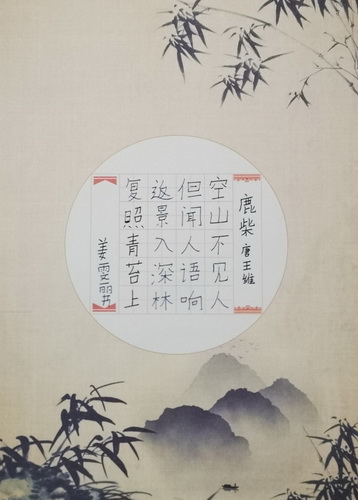 鹿柴 唐 王維
空山不见人
但闻人语响
返景入深林
复照青苔上
姜雯丽书